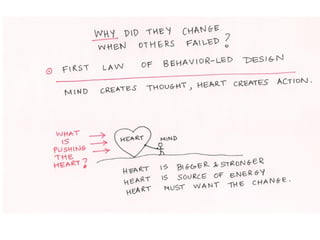 WHY DID THEY CHANGE
WHEN OTHERS FAILED?
FIRST LAW OF BEHAVIOR-LED DESIGN
MIND CREATES THOUGHT, HEART CREATES ACTION.
WHAT
IS
PUSHING
THE
HEART?
HEART
MIND
HEART IS BIGGER & STRONGER
HEART IS SOURCE OF ENERGY
HEART MUST WANT THE CHANGE.